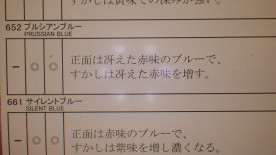 すかしは黄味での深みが強い。
652 プルシアンブルー
PRUSSIAN BLUE
－ ◎ ◎
正面は冴えた赤味のブルーで、
すかしは冴えた赤味を増す。
661 サイレントブルー
SILENT BLUE
－ ◎ ◎
正面は赤味のブルーで、
すかしは紫味を増し濃くなる。